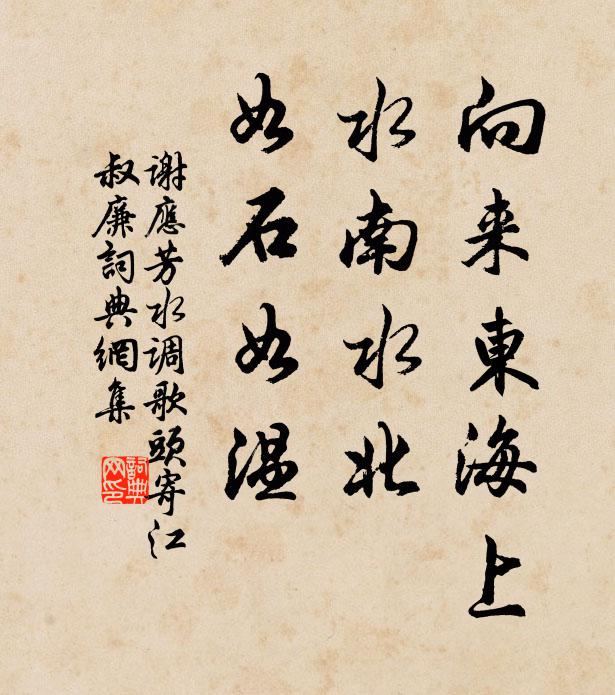 向来東海上
水南水北
如石如温
谢應芳水调歌頭寄江
叔廉詞典網集
詞典
网印